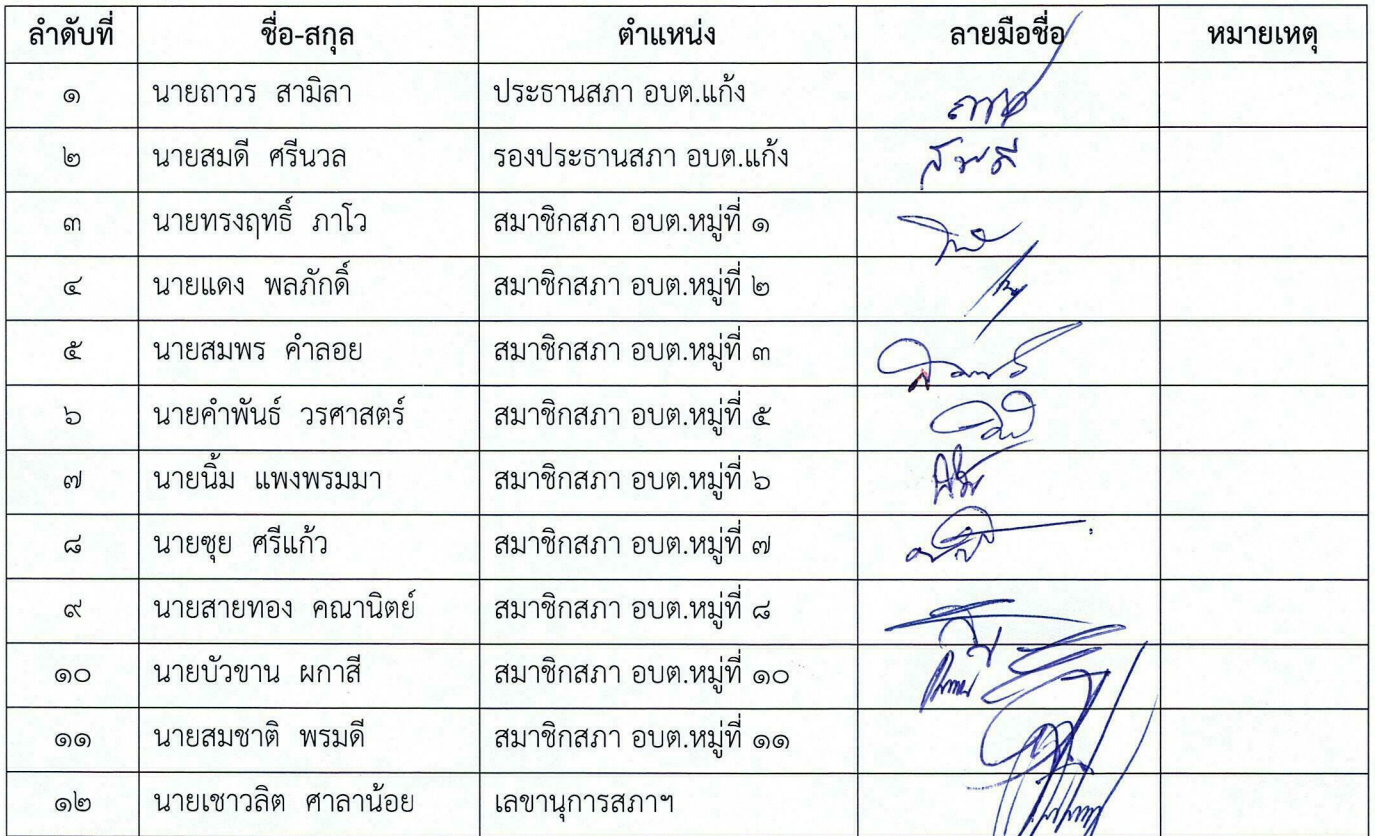 ลำดับที่ ชื่อ-สกุล ตำแหน่ง ลายมือชื่อ หมายเหตุ
๑ นายถาวร สามิลา ประธานสภา อบต.แก้ง
๒ นายสมดี ศรีนวล รองประธานสภา อบต.แก้ง สมดี
๓ นายทรงฤทธิ์ ภาโว สมาชิกสภา อบต.หมู่ที่ ๑
๔ นายแดง พลภักดิ์ สมาชิกสภา อบต.หมู่ที่ ๒
๕ นายสมพร คำลอย สมาชิกสภา อบต.หมู่ที่ ๓
๖ นายคำพันธ์ วรศาสตร์ สมาชิกสภา อบต.หมู่ที่ ๕
๗ นายนิ้ม แพงพรมมา สมาชิกสภา อบต.หมู่ที่ ๖
๘ นายซุย ศรีแก้ว สมาชิกสภา อบต.หมู่ที่ ๗
๙ นายสายทอง คณานิตย์ สมาชิกสภา อบต.หมู่ที่ ๘
๑๐ นายบัวขาน ผกาสี สมาชิกสภา อบต.หมู่ที่ ๑๐
๑๑ นายสมชาติ พรมดี สมาชิกสภา อบต.หมู่ที่ ๑๑
๑๒ นายเชาวลิต ศาลาน้อย เลขานุการสภาฯ